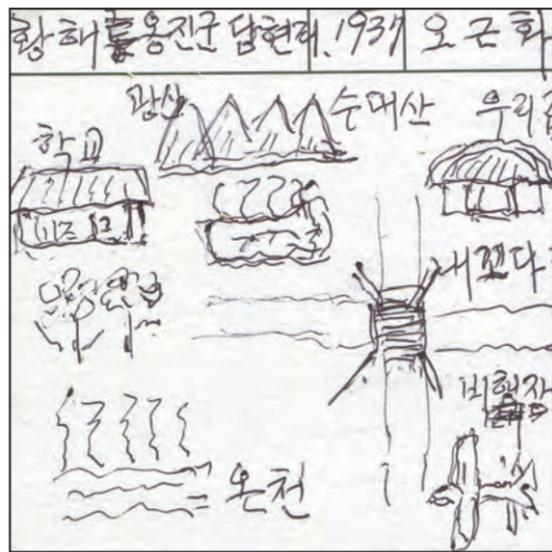 황해도 옹진군 답현리. 1937 오근화
광산
수대산
우리집
학교
내꼬다리
비행장
온천